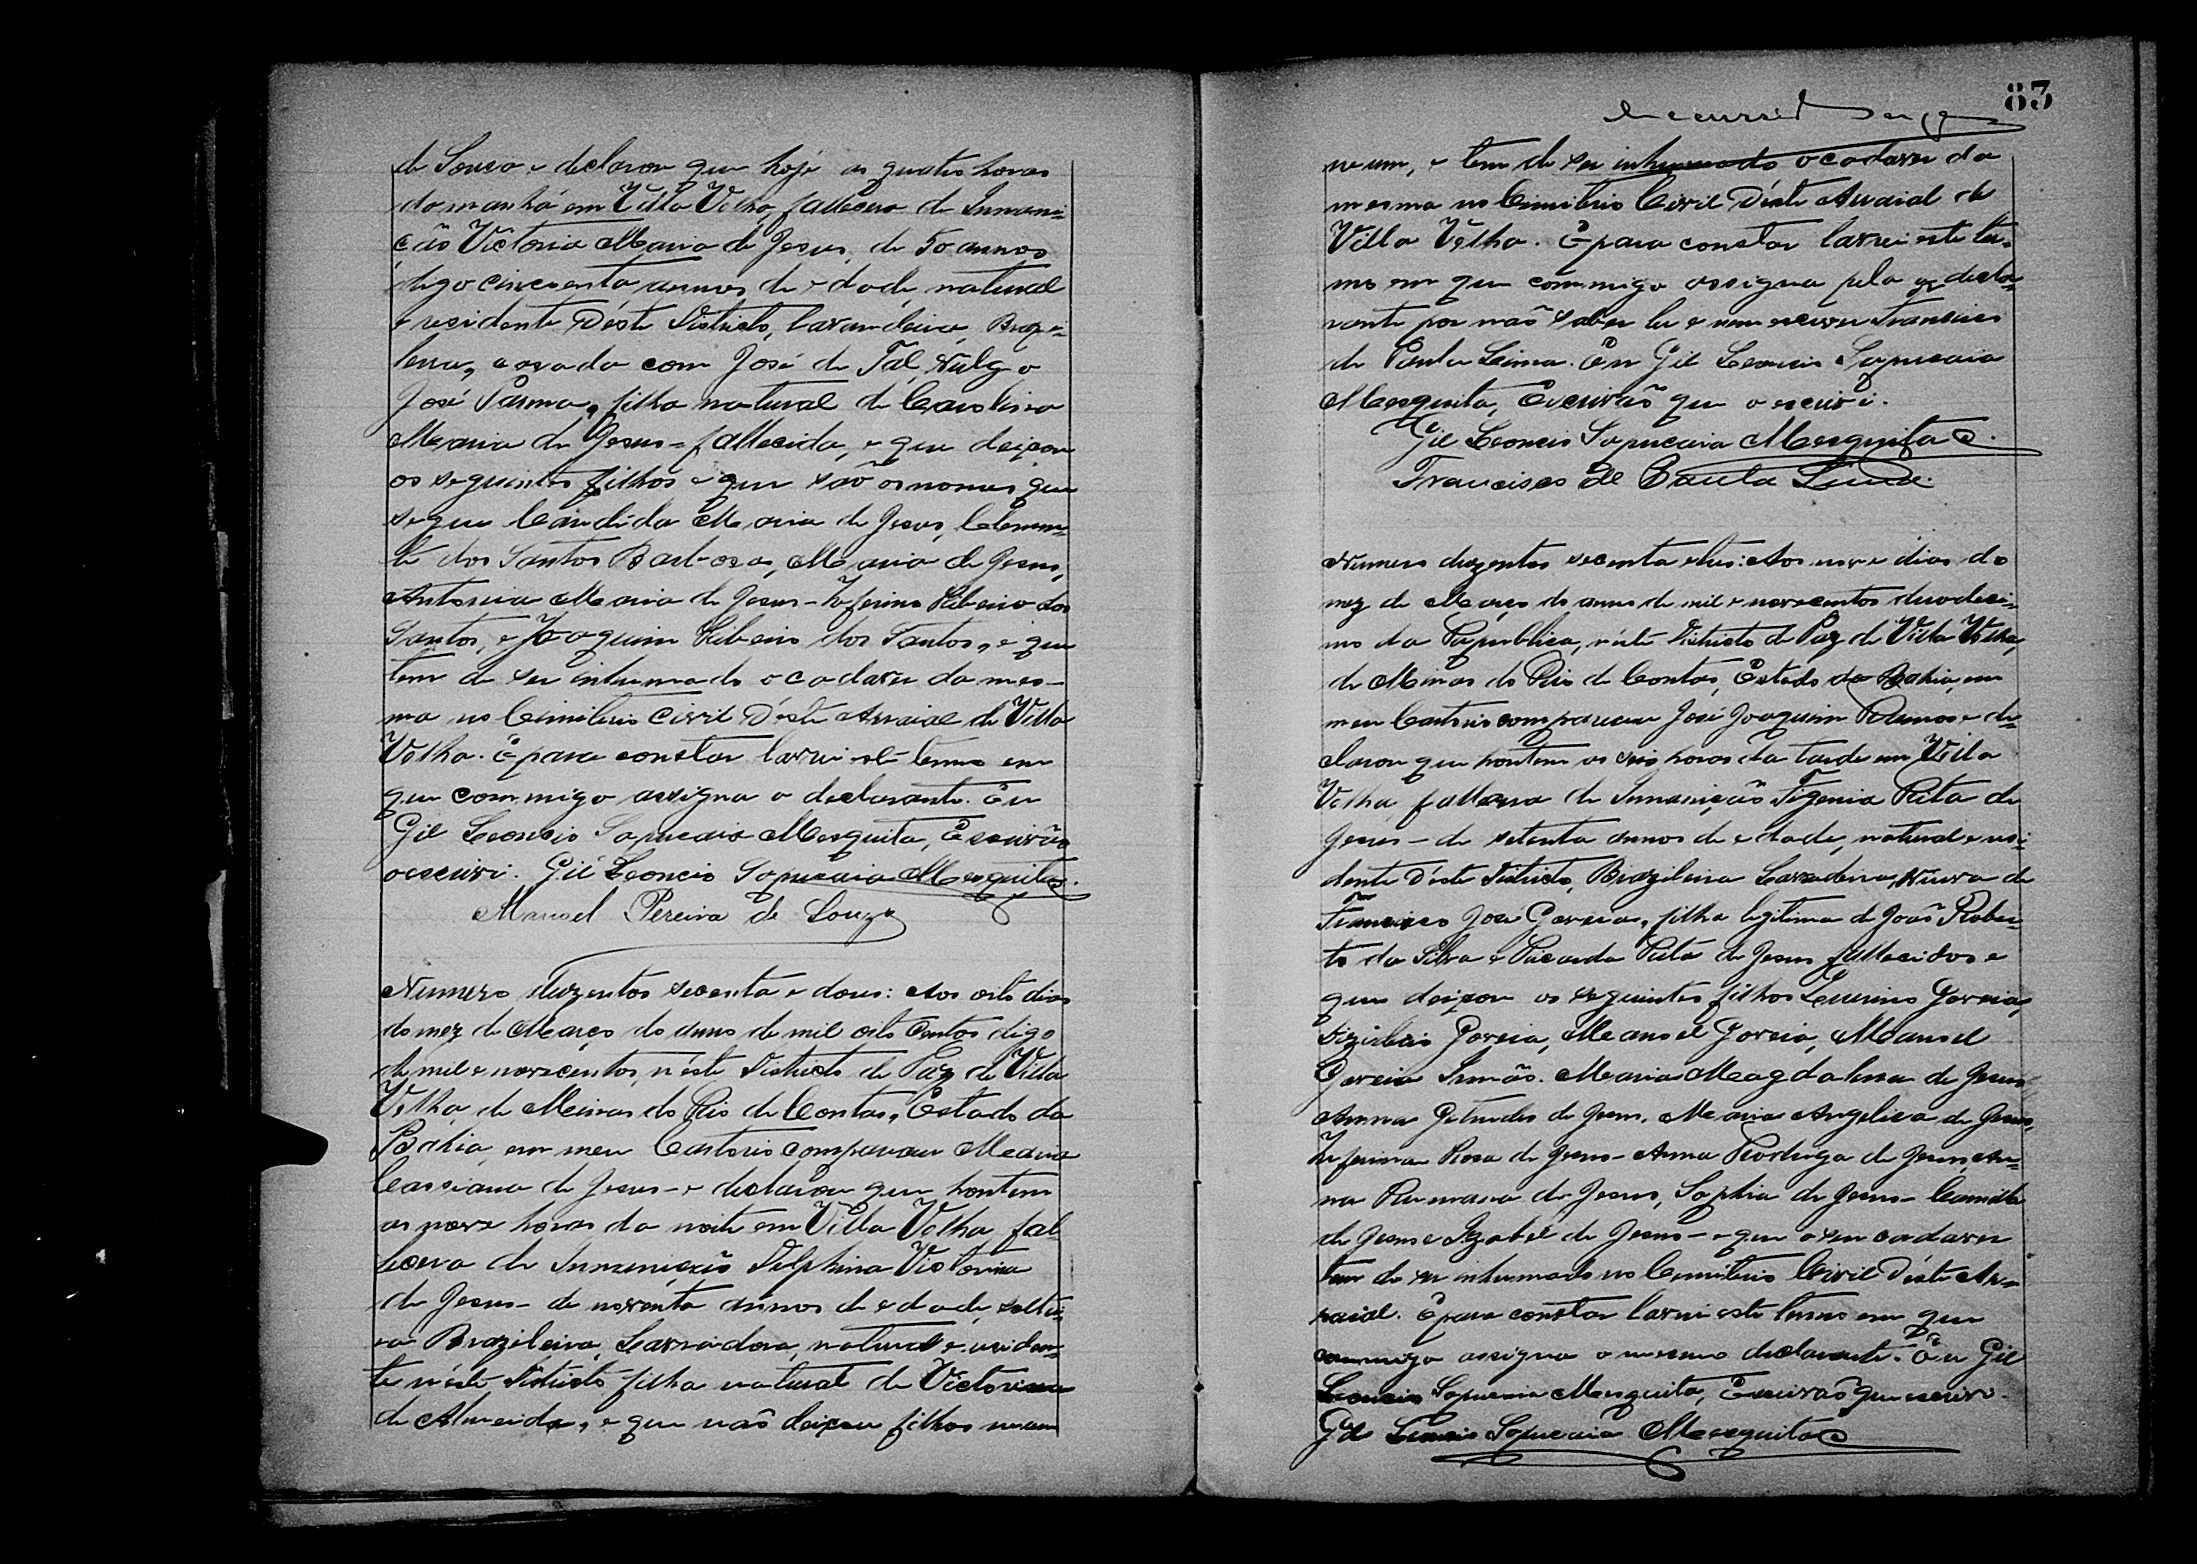 de Souza e declarou que hoje as quatro horas
da manhã em Villa Velha falleceu de Innani-
ção Victoria Maria de Jesus, de 50 annos
digo cincoenta annos de edade, natural
e residente D'éste Districto, Lavandeira, Brazi-
leira, casada com José de Tal, Vulgo
José Parma, filha natural de Carolina
Maria de Jesus = fallecida, e que deixou
os seguintes filhos e que são os nomes que
segue Candida Maria de Jesus, Clemen-
te dos Santos Barbosa, Maria de Jesus,
Antonia Maria de Jesus - Zeferino Ribeiro dos
Santos, e Joaquim Ribeiro dos Santos, e que
tem de ser inhumado o cadaver da mes-
ma no Cimiterio Civil D'éste Arraial de Villa
Velha. E para constar lavrei este termo em
que commigo assigna o declarante. Eu
Gil Leoncio Sapucaia Mesquita, Escrivão
o escrivi. Gil Leoncio Sapucaia Mesquita.
Manoel Pereira de Souza
Numero duzentos secenta e dous: Aos oito dias
do mez de Março do anno de mil oito Centos digo
de mil e novecentos, n'éste Districto de Paz de Villa
Velha, de Minas do Rio de Contas, Estado da
Bahia, em meu Cartorio compareceu Maria
Cassiana de Jesus - e declarou que hontem
as nove horas da noite em Villa Velha fal
lecera de Innanição Delphina Victoria
de Jesus - de noventa annos de edade, soltei-
ra Brazileira, Lavradora, natural e residen-
te n'éste Districto filha natural de Victoriana
de Almeida, e que não deixou filhos nenum
83
neum, e tem de ser inhumado o cadaver da
mesma no Cimiterio Civil D'éste Arraial de
Villa Velha. E para constar lavrei este ter-
mo em que commigo assigna pela decla-
rante por não saber ler e nem escrever Francisco
de Paula Lima. Eu Gil Leoncio Sapucaia
Mesquita, Escrivão que o escrivi.
Gil Leoncio Sapucaia Mesquita.
Francisco de Paula Lima.
Numero duzentos secenta e tres: Aos nove dias do
mez de Março do anno de mil e novecentos duodeci-
mo da Republica, n'éste Districto de Paz de Villa Velha,
de Minas do Rio de Contas, Estado da Bahia, em
meu Cartorio compareceu José Joaquim Ramos e de-
clarou que hontem as seis horas da tarde em Villa
Velha falleceu de Innanição Figenia Rita de
Jesus - de setenta annos de edade, natural e resi-
dente D'éste Districto, Brazileira Lavradeira, Viuva de
Francisco José Garcia, filha legitima de João Rober-
to da Silva e Ricarda Rita de Jesus fallecidos e
que deixou os seguintes filhos Garcia,
Garcia, Manoel Garcia, Manoel
Garcia Irmão. Maria Magdalena de Jesus
Anna Getrudes de Jesus, Maria Angelica de Jesus,
Zeferina Rosa de Jesus - Anna Rodriga de Jesus, An-
na de Jesus, Sophia de Jesus - Camilla
de Jesus e Izabel de Jesus - e que o seu cadaver
tem de ser inhumado no Cemiterio Civil D'éste Ar-
raial. E para constar lavrei este termo em que
commigo assigna o mesmo declarante. Eu Gil
Leoncio Sapucaia Mesquita, Escrivão que escrivi.
Gil Leoncio Sapucaia Mesquita